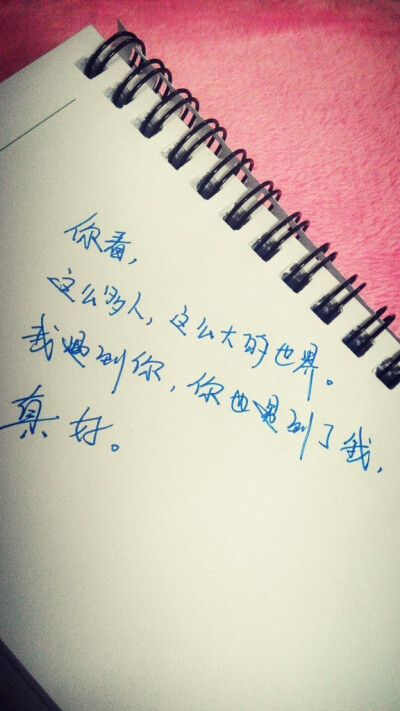 你看，
这么多人，这么大的世界。
我遇到你，你也遇到了我，
真好。